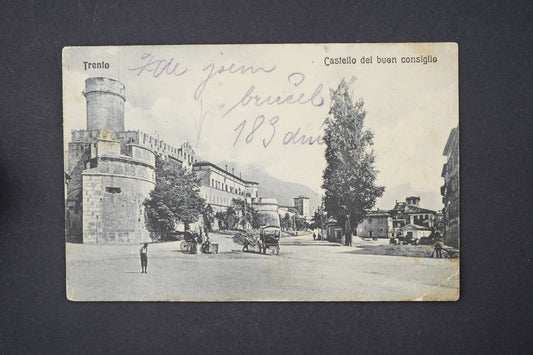 Trento
Castello del buon consiglio
Zde jsem
"brucel"
183 dní